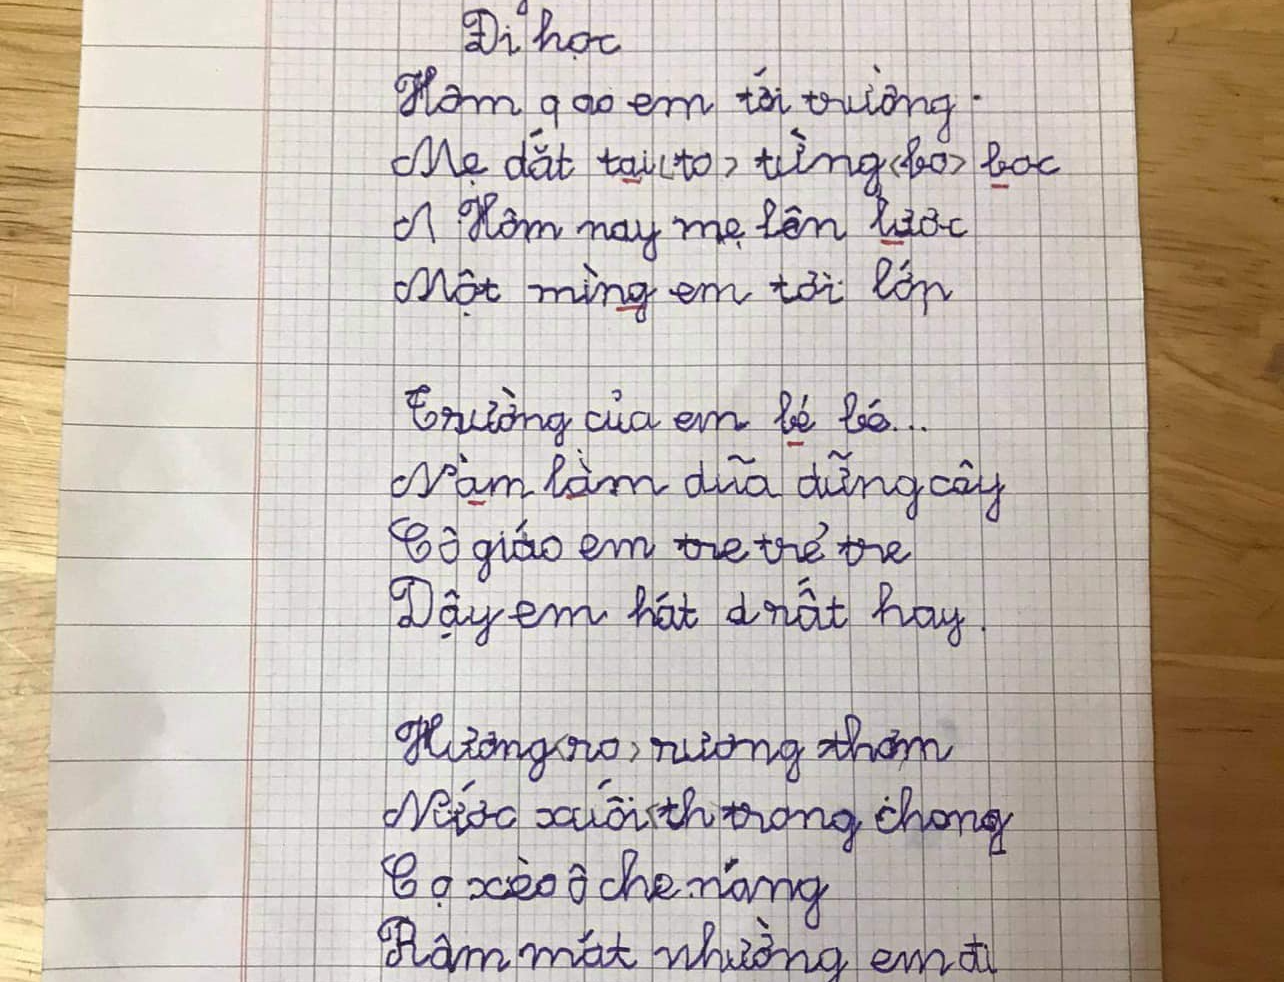 Đi học
Hôm qao em tới trường.
Mẹ dắt tại(to) từng(bo) boc
Hôm nay mẹ lên lước
Một mìng em tới lớp
Trường của em bé bé...
Nàm làm dũa dững cây
Cô giáo em tre trẻ tre
Dậy em hát d rất hay.
Hương(ro) rương thơm
Nước xuối(th trong chong
Cọ xèo ô che náng
Râm mát nhường em đi